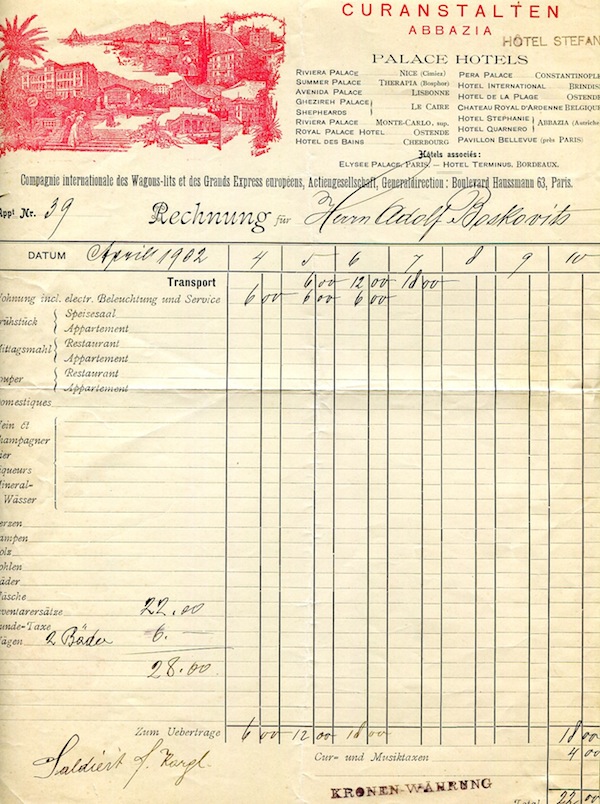 CURANSTALTEN
ABBAZIA
HÔTEL STEFAN
PALACE HOTELS
RIVIERA PALACE NICE (Cimiez)
SUMMER PALACE THERAPIA (Bosphor)
AVENIDA PALACE LISBONNE
GHEZIREH PALACE
SHEPHEARDS LE CAIRE
RIVIERA PALACE MONTE-CARLO, sup.
ROYAL PALACE HOTEL OSTENDE
HOTEL DES BAINS CHERBOURG
PERA PALACE CONSTANTINOPLE
HOTEL INTERNATIONAL BRINDISI
HOTEL DE LA PLAGE OSTENDE
CHATEAU ROYAL D'ARDENNE BELGIQUE
HOTEL STEPHANIE
HOTEL QUARNERO ABBAZIA (Autriche)
PAVILLON BELLEVUE (près PARIS)
Hôtels associés:
ELYSEE PALACE, PARIS. — HOTEL TERMINUS, BORDEAUX.
Compagnie internationale des Wagons-lits et des Grands Express européens, Actiengesellschaft, Generaldirection: Boulevard Haussmann 63, Paris.
Appt Nr. 39 Rechnung für Herrn Adolf Boskovits
DATUM April 1902 4 5 6 7 8 9 10
Transport 6 00 12 00 18 00
Wohnung incl. electr. Beleuchtung und Service 6 00 6 00 6 00
Frühstück Speisesaal
Appartement
Mittagsmahl Restaurant
Appartement
Souper Restaurant
Appartement
Domestiques
Wein &
Champagner
Bier
Liqueurs
Mineral-
Wässer
Kerzen
Lampen
Holz
Kohlen
Bäder
Wäsche
Inventarersätze 22.00
Hunde-Taxe
Wägen 2 Bäder 6.—
28.00
Zum Uebertrage 6 00 12 00 18 00 18 00
Saldiert
Cur- und Musiktaxen 4 00
KRONEN-WÄHRUNG
Total 22 00